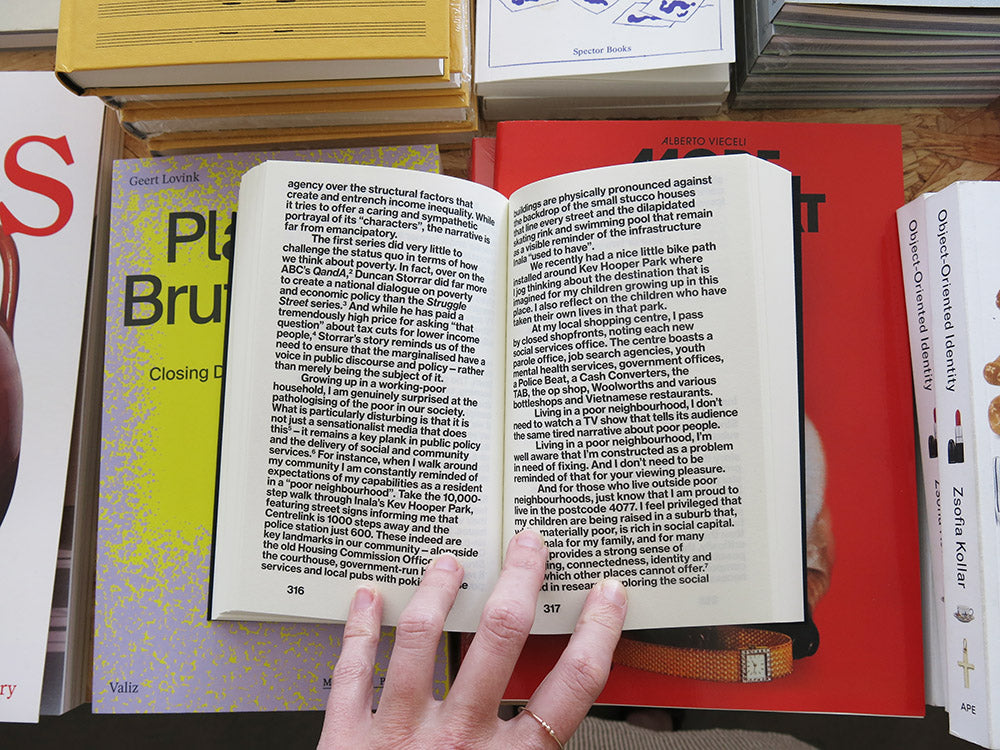 Spector Books
S
ry
Geert Lovink
Pla
Brut
Closing D
Valiz
ALBERTO VIECELI
agency over the structural factors that
create and entrench income inequality. While
it tries to offer a caring and sympathetic
portrayal of its “characters”, the narrative is
far from emancipatory.
The first series did very little to
challenge the status quo in terms of how
we think about poverty. In fact, over on the
ABC’s QandA,² Duncan Storrar did far more
to create a national dialogue on poverty
and economic policy than the Struggle
Street series.³ And while he has paid a
tremendously high price for asking “that
question” about tax cuts for lower income
people,⁴ Storrar’s story reminds us of the
need to ensure that the marginalised have a
voice in public discourse and policy – rather
than merely being the subject of it.
Growing up in a working-poor
household, I am genuinely surprised at the
pathologising of the poor in our society.
What is particularly disturbing is that it is
not just a sensationalist media that does
this⁵ – it remains a key plank in public policy
and the delivery of social and community
services.⁶ For instance, when I walk around
my community I am constantly reminded of
expectations of my capabilities as a resident
in a “poor neighbourhood”. Take the 10,000-
step walk through Inala’s Kev Hooper Park,
featuring street signs informing me that
Centrelink is 1000 steps away and the
police station just 600. These indeed are
key landmarks in our community – alongside
the old Housing Commission Office
the courthouse, government-run h
services and local pubs with poki
316
buildings are physically pronounced against
the backdrop of the small stucco houses
that line every street and the dilapidated
skating rink and swimming pool that remain
as a visible reminder of the infrastructure
Inala “used to have”.
We recently had a nice little bike path
installed around Kev Hooper Park where
I jog thinking about the destination that is
imagined for my children growing up in this
place. I also reflect on the children who have
taken their own lives in that park.
At my local shopping centre, I pass
by closed shopfronts, noting each new
social services office. The centre boasts a
parole office, job search agencies, youth
mental health services, government offices,
a Police Beat, a Cash Converters, the
TAB, the op shop, Woolworths and various
bottleshops and Vietnamese restaurants.
Living in a poor neighbourhood, I don’t
need to watch a TV show that tells its audience
the same tired narrative about poor people.
Living in a poor neighbourhood, I’m
well aware that I’m constructed as a problem
in need of fixing. And I don’t need to be
reminded of that for your viewing pleasure.
And for those who live outside poor
neighbourhoods, just know that I am proud to
live in the postcode 4077. I feel privileged that
my children are being raised in a suburb that,
materially poor, is rich in social capital.
nala for my family, and for many
provides a strong sense of
ing, connectedness, identity and
which other places cannot offer.⁷
d in resear ploring the social
317
Object-Oriented Identity
Object-Oriented Identity
Zsofia Kollar
APE